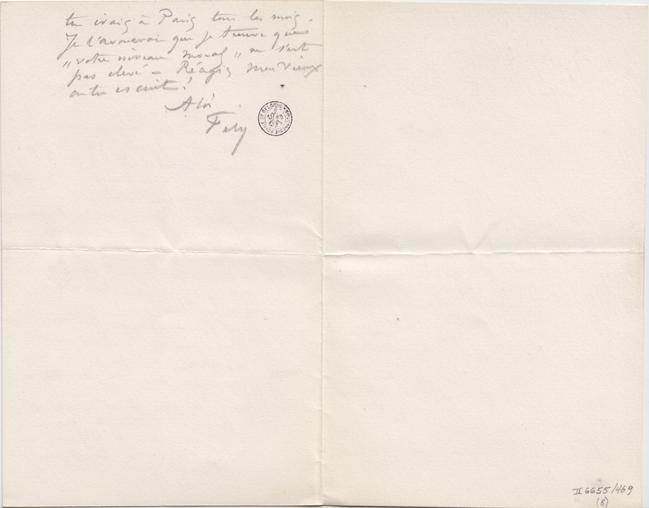 tu irais à Paris tous les mois.
Je t'avouerai que je trouve que
"votre niveau moral" ne s'est
pas élevé – Réagis mon vieux
ou tu es cuit!
A toi
Fély
II 6655/469
(8)